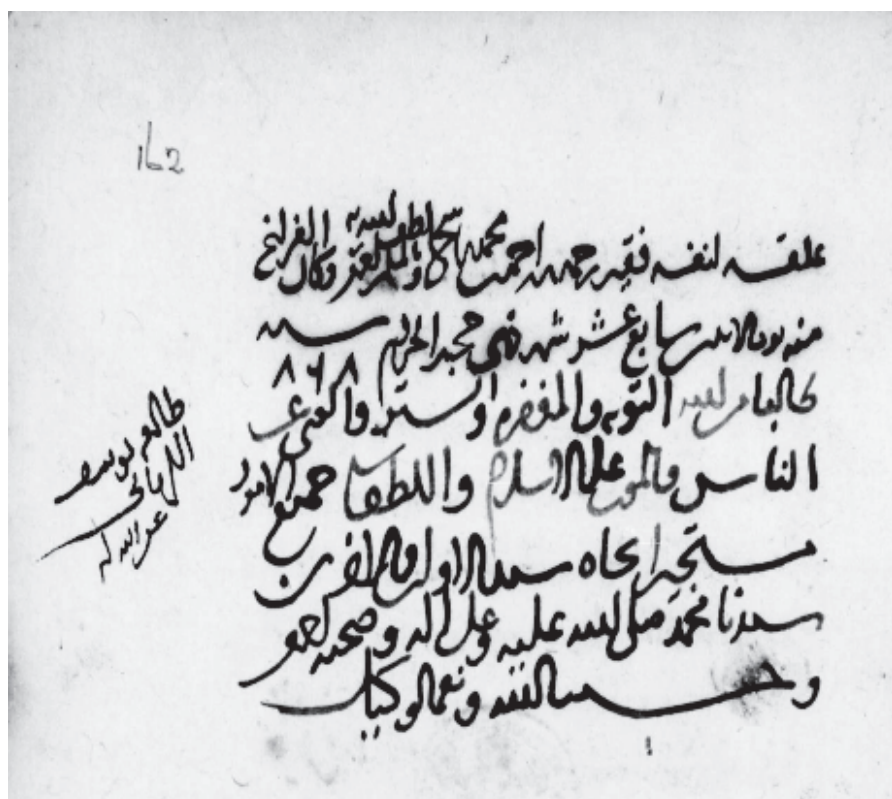 162
علقه لنفسه فقير رحمة ربه احمد بن محمد لطف الله به وكان الفراغ
منه يوم الاثنين سابع عشر شهر ذي الحجة الحرام سنة
٨٦٨
طالبا من الله التوبة والمغفرة والستر والغنى عن
الناس والموت على الاسلام واللطف في جميع الامور
مستجيرا بجاه سيد الاولين والاخرين
سيدنا محمد صلى الله عليه وعلى اله وصحبه
وحسبنا الله ونعم الوكيل
طالعه يوسف
عفر الله له